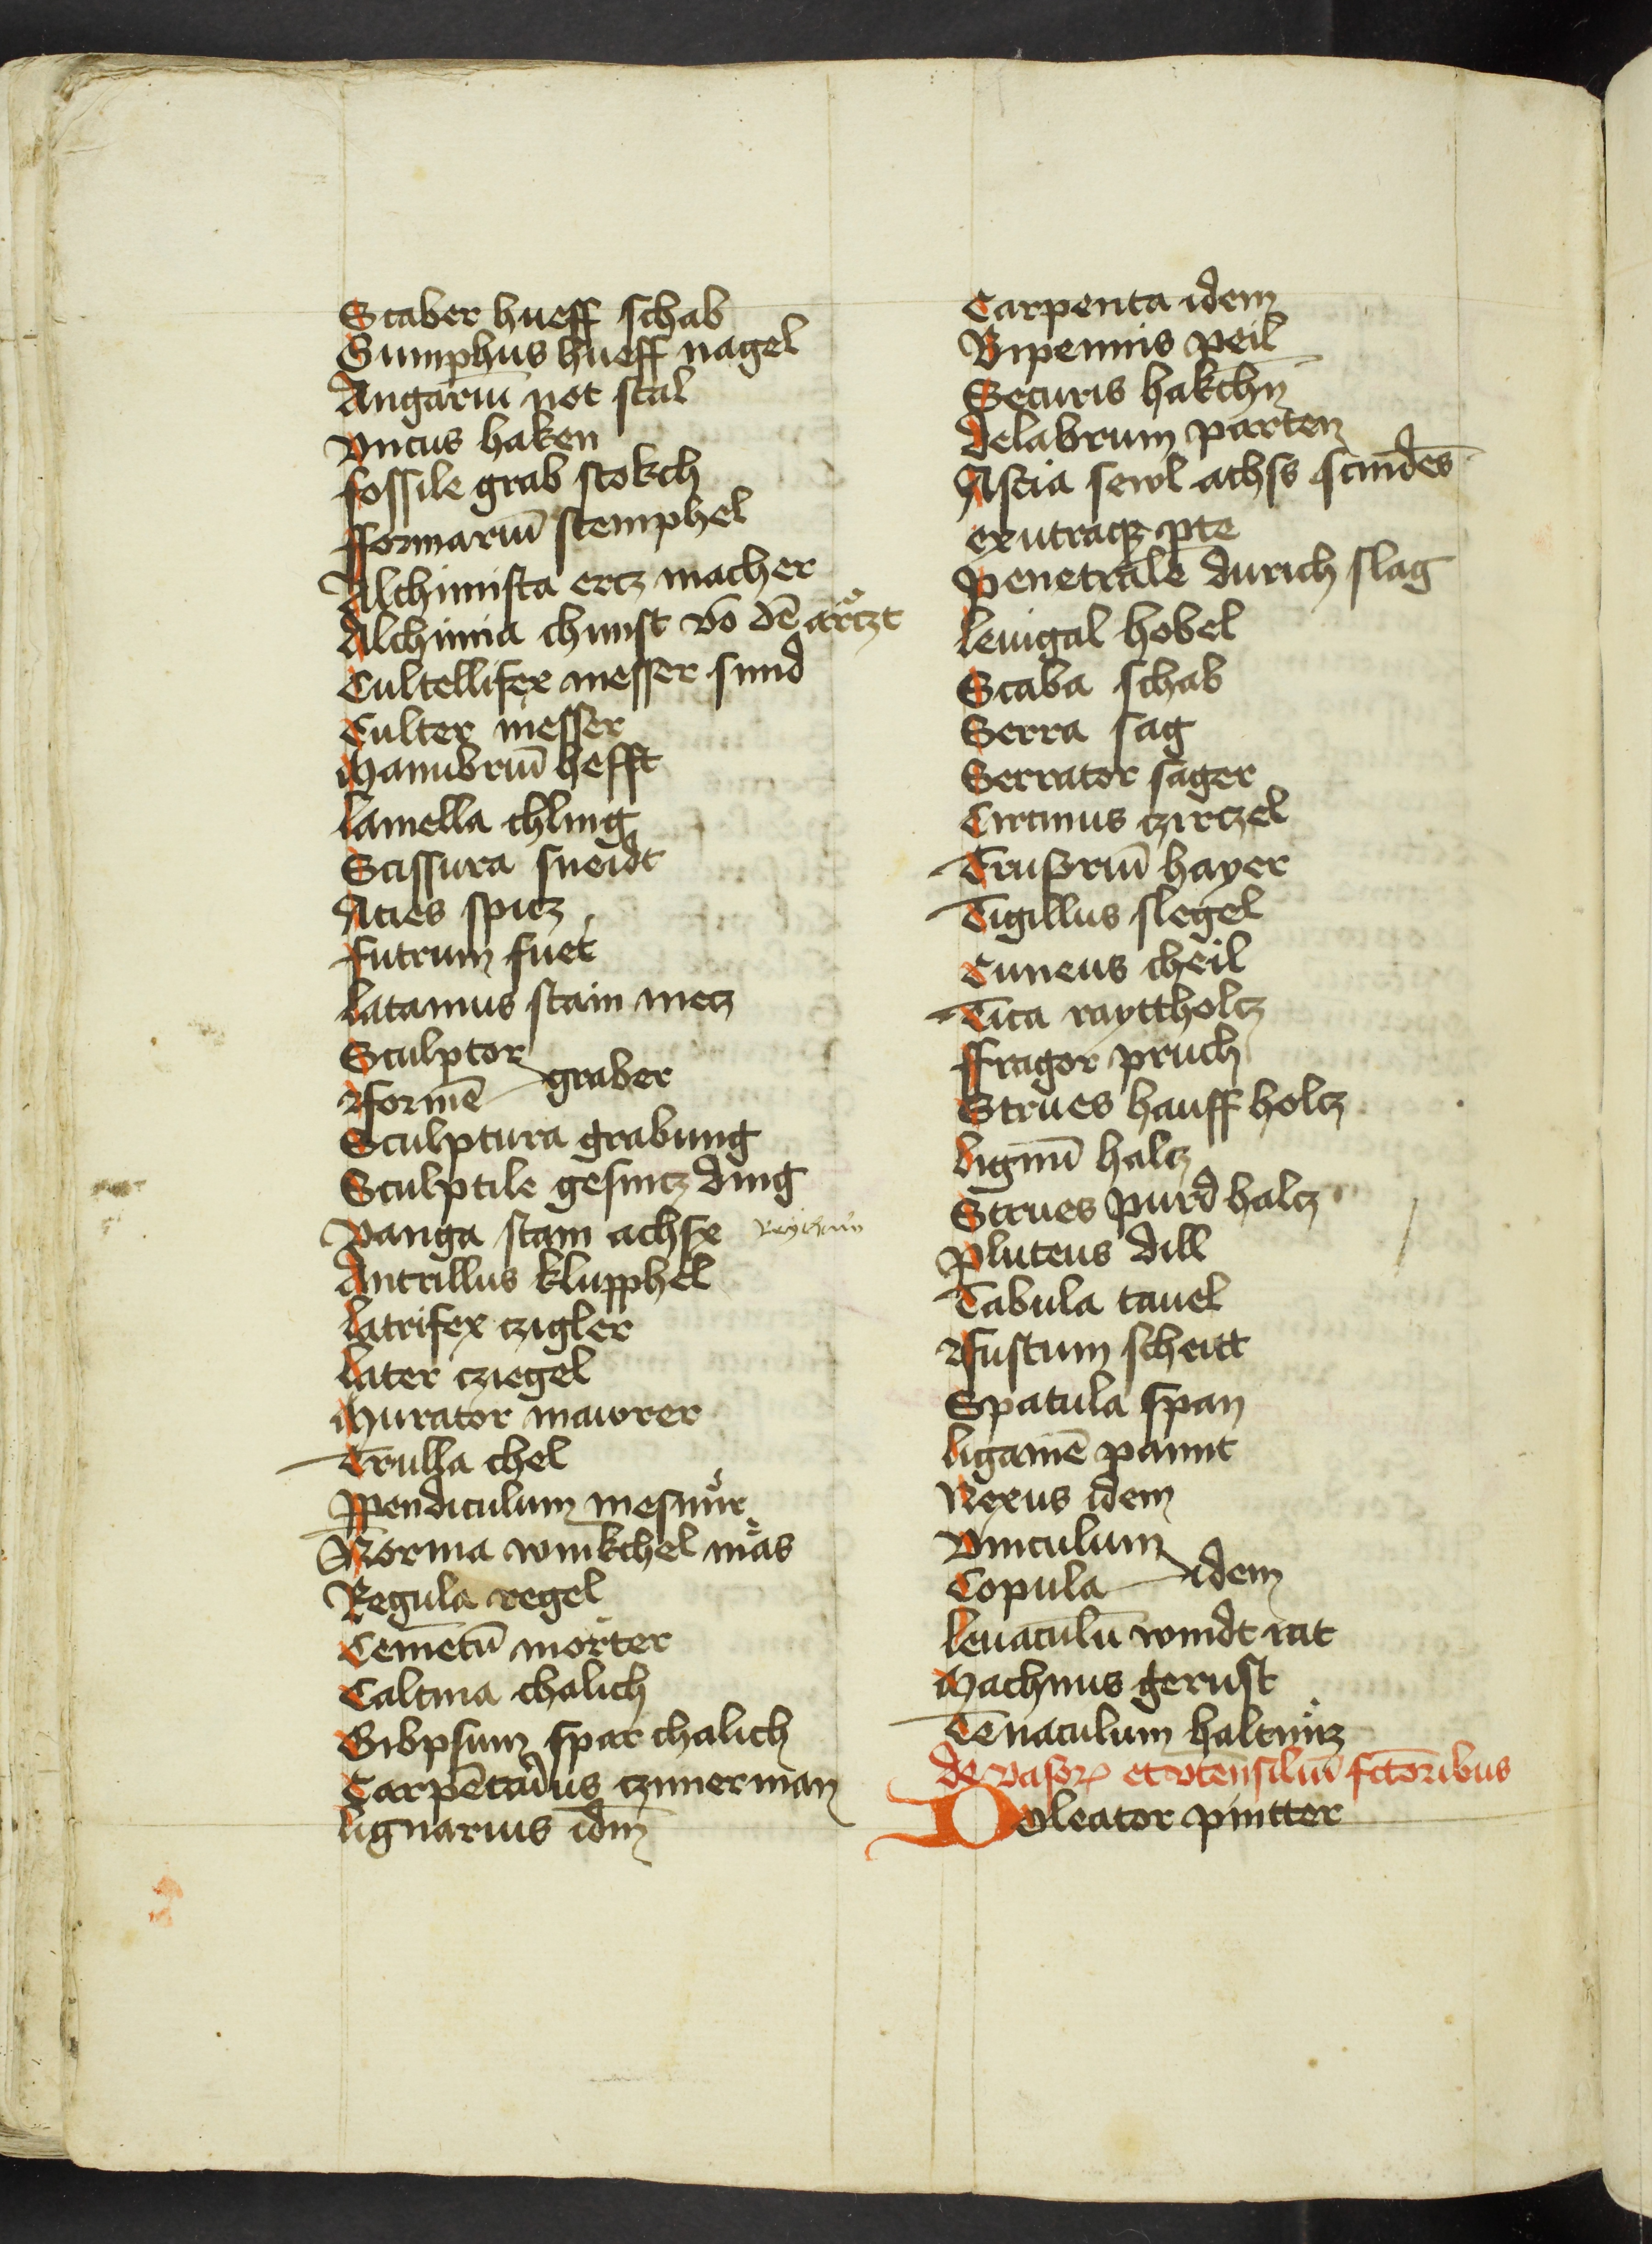 Scaber hueff schab
Gumphus hueff nagel
Angariū not stal
Vncus haken
fossile grab stokch
fformariū stemphel
Alchimista ercz macher
Alchimia chunst vō dē arczt
Cultellifex messer smid
Culter messer
Manubriū hefft
lamella chling
Scissura sneidt
Acies spicz
futrum fuet
latamus stain mecz
Sculptor
fformē graber
Sculptura grabung
Sculptile gesnicz ding
Vanga stain achsx
Antrillus klupphel
latrifex czigler
later cziegel
Murator mawrer
Trulla chel
Ppendiculum mesnur
Norma winkchel mas
Regula regel
Cemētū morter
Calcina chalich
Gibpsum spar chalich
Carpētarius czimerman
lignarius idm̄
Carpenta idem
Bipennis peil
Securis hakchn̄
delabrum parten
Ascia sewl achss scindēs
ex utraqꝫ pte
penetrale durich slag
leuigal hobel
Scaba schab
Serra sag
Serrator sager
Circinus czirczel
Trusoriū hayer
Tigillus slegel
Cuneus cheil
Tica rayttholcz
ffragor pruch
Strues hauff holcz
lignū halcz
Strues purd halcz
pluteus dill
Tabula tauel
ffustum scheitt
Spatula span
ligamē pannt
Nexus idem
Vinculum
Copula idem
leuaculū windt rat
Machinus gerust
Tenaculum haltnucz
de vasoꝝ et vtensiliū fctōribus
Doleator pintter